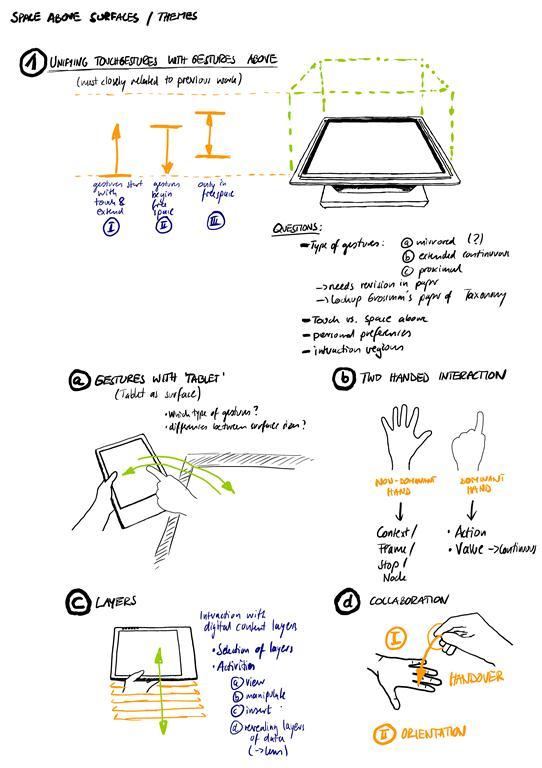 SPACE ABOVE SURFACES / THEMES
1 UNIFYING TOUCHGESTURES WITH GESTURES ABOVE
(most closely related to previous work)
gestures start
with
touch &
extend
I
gestures
begin
free
space
II
only in
freespace
III
QUESTIONS:
– Type of gestures: a mirrored (?)
b extended continuous
c proximal
→ needs revision in paper
→ Lookup Grossman's paper of Taxonomy
– Touch vs. space above
– personal preferences
– interaction regions
a GESTURES WITH 'TABLET'
(Tablet as surface)
• Which type of gestures?
• differences between surface sizes?
b TWO HANDED INTERACTION
NON-DOMINANT
HAND
Context/
Frame/
Stop/
Node
DOMINANT
HAND
• Action
• Value → continuous
c LAYERS
Interaction with
digital content layers
• Selection of layers
• Activities
a view
b manipulate
c insert
d revealing layers
of data
(→ Lens)
d COLLABORATION
I
HANDOVER
II ORIENTATION